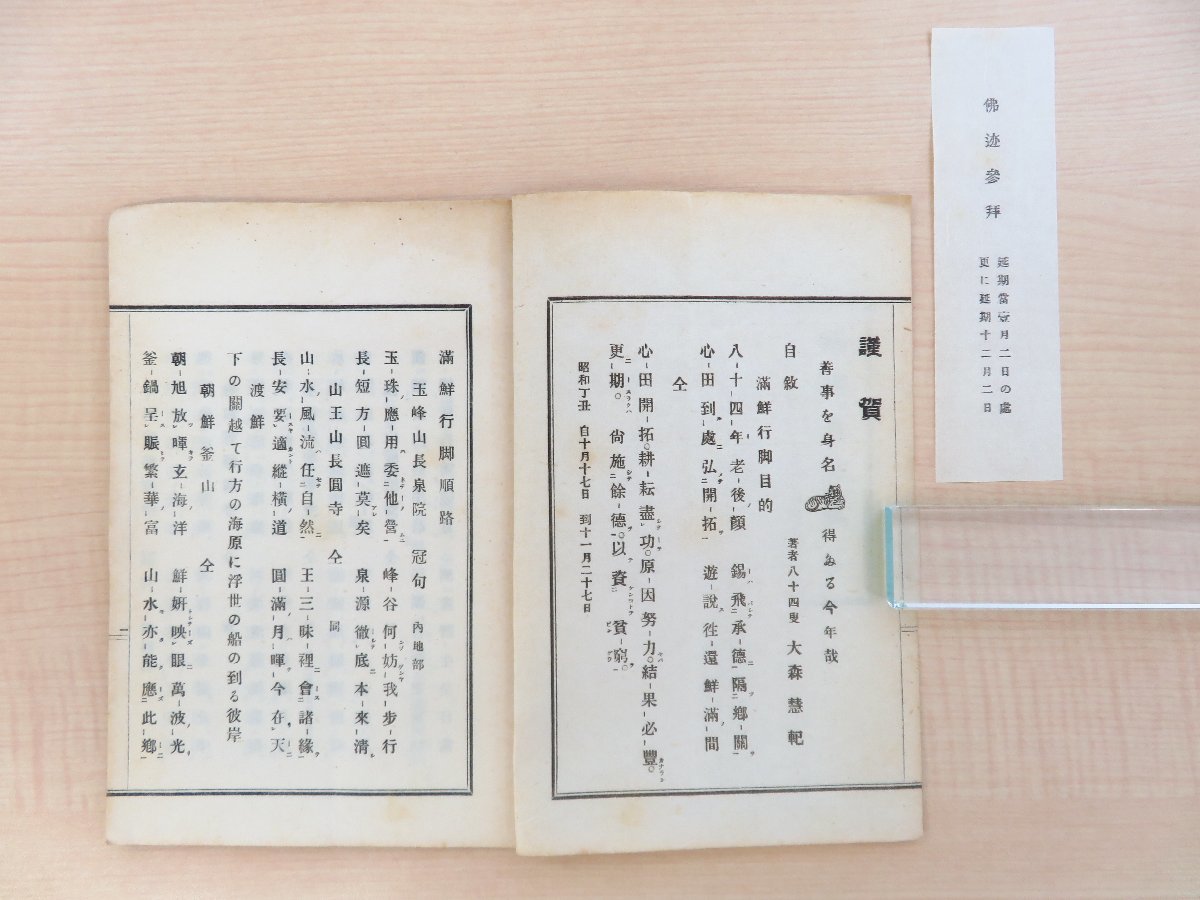 佛迹參拜
延期當壹月二日の處
更に延期十二月二日
謹賀
善事を身名 得ゐる今年哉
自敘
著者八十四叟 大森慧
滿鮮行脚目的
八十四年老後顏 錫飛承德隔鄉關
心田到處弘開拓 遊說徃還鮮滿間
仝
心田開拓。耕耘盡功。原因努力。結果必豐。
更期。尙施餘德。以資貧窮。
昭和丁丑 自十月十七日 到十一月二十七日
滿鮮行脚順路
玉峰山長泉院 冠句 內地部
玉珠應用委他營 峰谷何妨我步行
長短方圓遮莫矣 泉源徹底本來清
山王山長圓寺 仝 同
山水風流任自然 王三昧裡會諸緣
長安要適縱橫道 圓滿月暉今在天
渡鮮
下の關越て行方の海原に浮世の船の到る彼岸
朝鮮釜山 仝
朝旭放暉玄海洋 鮮姸映眼萬波光
釜鍋呈賑繁華富 山水亦能應此鄉